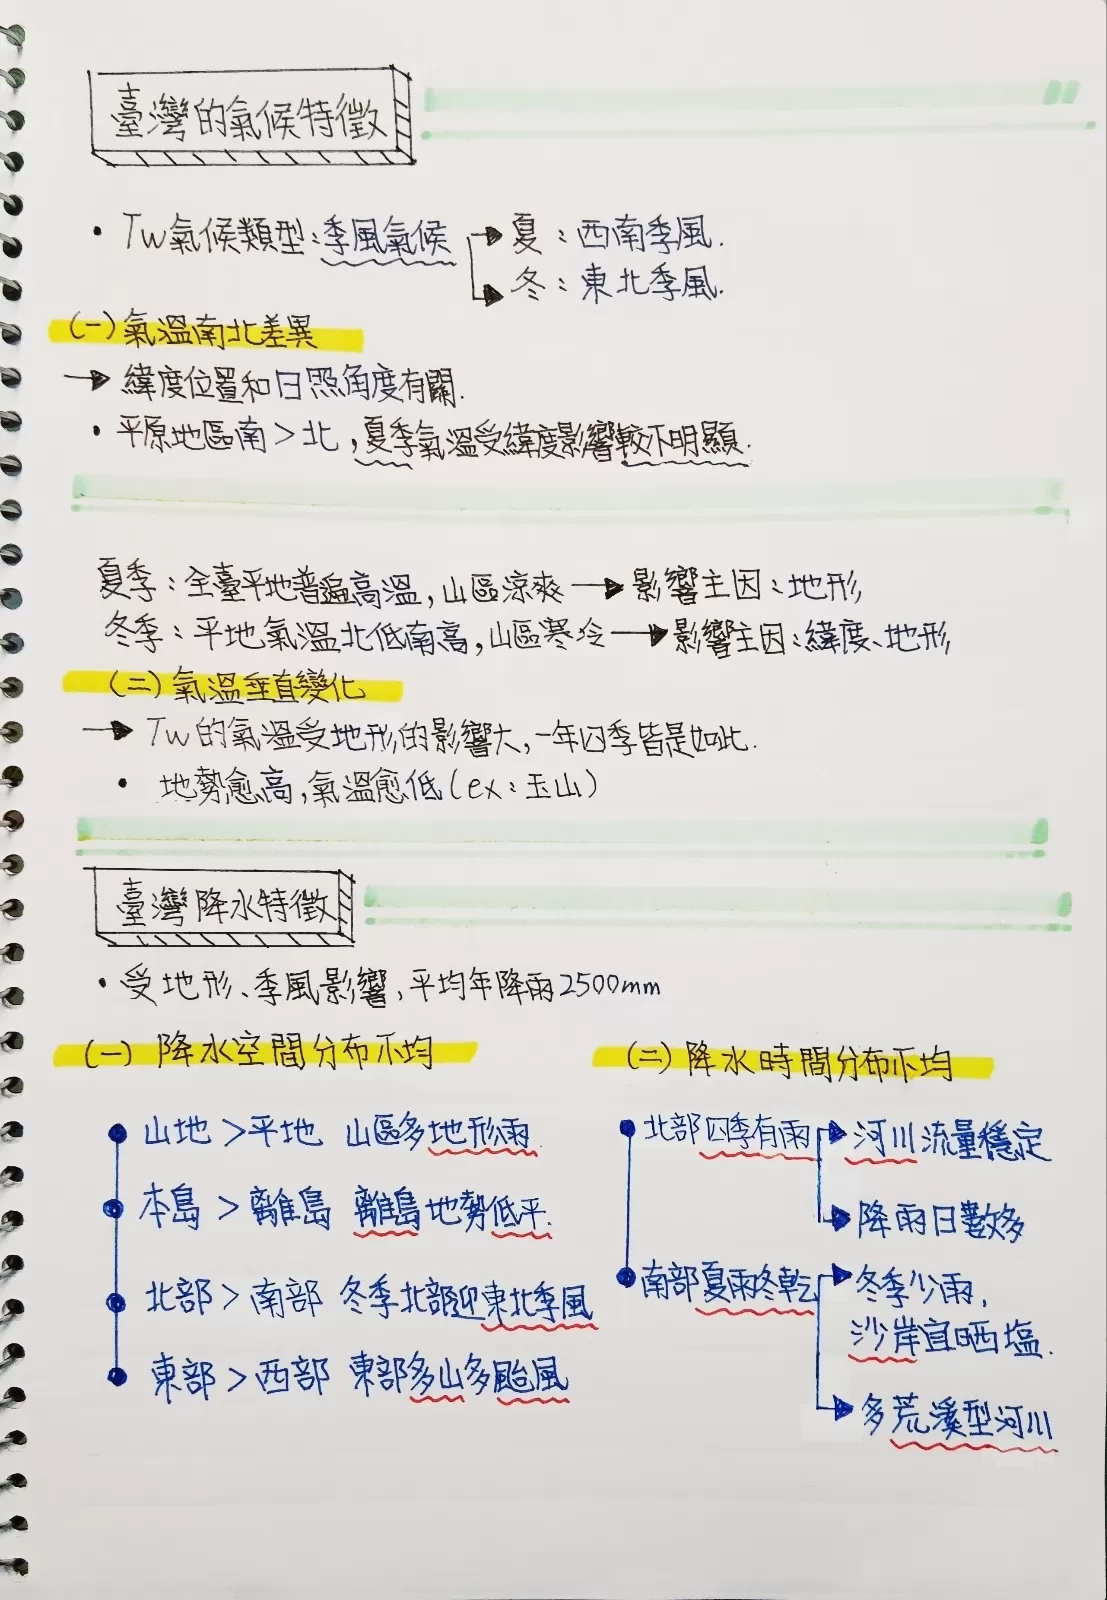 臺灣的氣候特徵
• Tw氣候類型:季風氣候 → 夏:西南季風.
→ 冬:東北季風.
(一)氣溫南北差異
→ 緯度位置和日照角度有關.
• 平原地區南>北,夏季氣溫受緯度影響較不明顯.
夏季:全臺平地普遍高溫,山區涼爽 → 影響主因:地形
冬季:平地氣溫北低南高,山區寒冷 → 影響主因:緯度、地形
(二)氣溫垂直變化
→ Tw的氣溫受地形的影響大,一年四季皆是如此.
• 地勢愈高,氣溫愈低(ex:玉山)
臺灣降水特徵
• 受地形、季風影響,平均年降雨2500mm
(一)降水空間分布不均
山地>平地 山區多地形雨.
本島>離島 離島地勢低平.
北部>南部 冬季北部迎東北季風
東部>西部 東部多山多颱風
(二)降水時間分布不均
北部四季有雨 → 河川流量穩定
→ 降雨日數多
南部夏雨冬乾 → 冬季少雨,
沙岸宜晒塩.
→ 多荒溪型河川